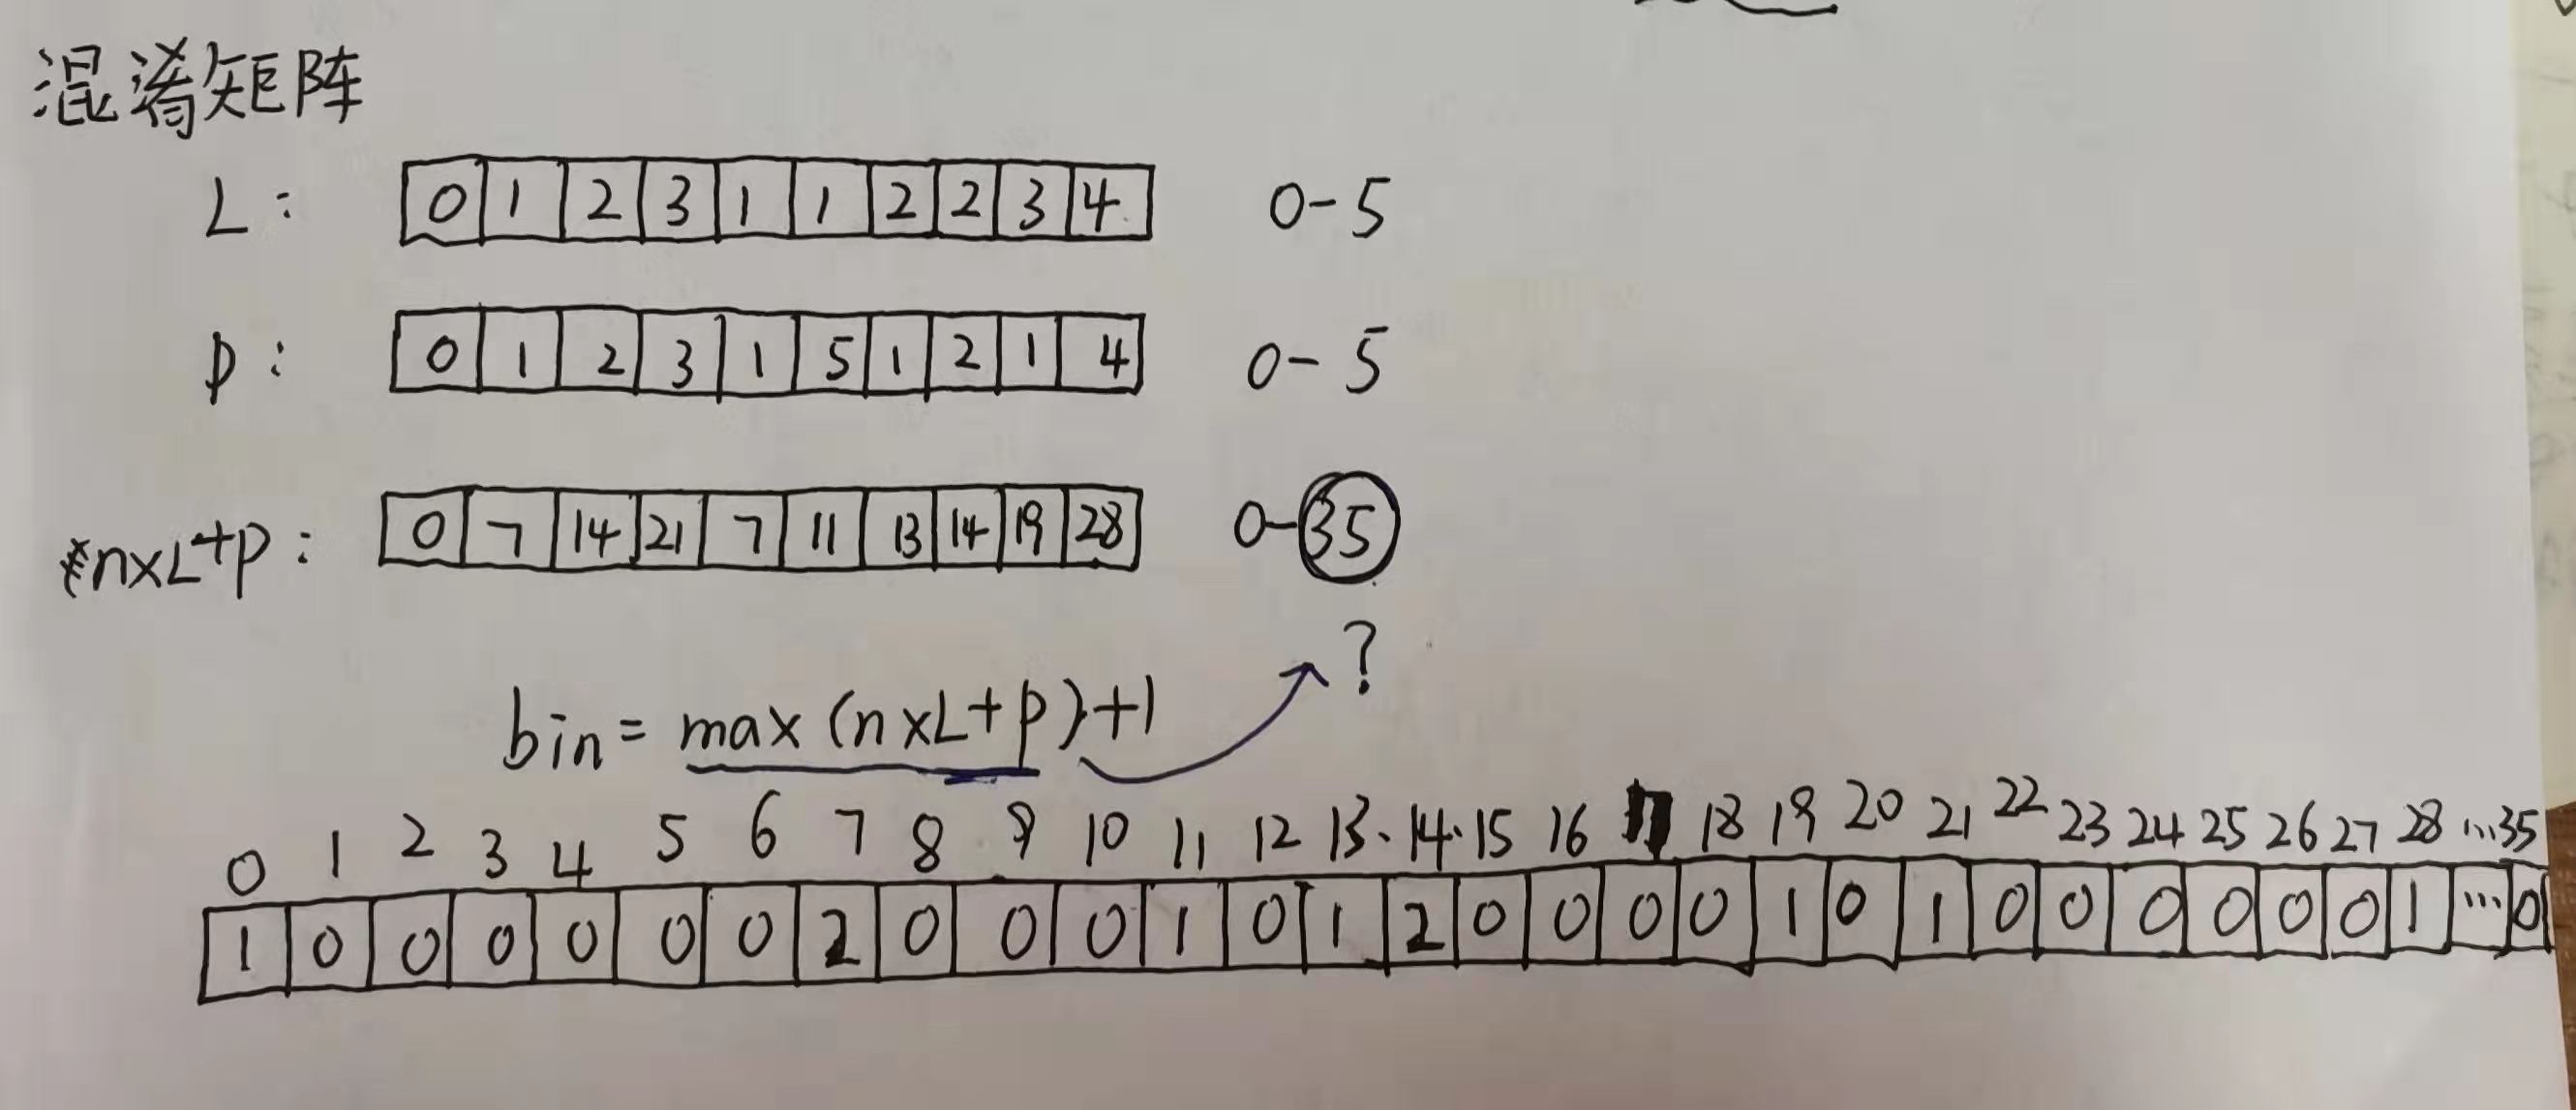 混淆矩阵
L: 0 1 2 3 1 1 2 2 3 4 0-5
p: 0 1 2 3 1 5 1 2 1 4 0-5
*n×L+p: 0 7 14 21 7 11 13 14 19 28 0-35
?
bin = max (n×L+p)+1
0 1 2 3 4 5 6 7 8 9 10 11 12 13. 14. 15 16 17 18 19 20 21 22 23 24 25 26 27 28 ...35
1 0 0 0 0 0 0 2 0 0 0 1 0 1 2 0 0 0 0 1 0 1 0 0 0 0 0 0 1 ... 0